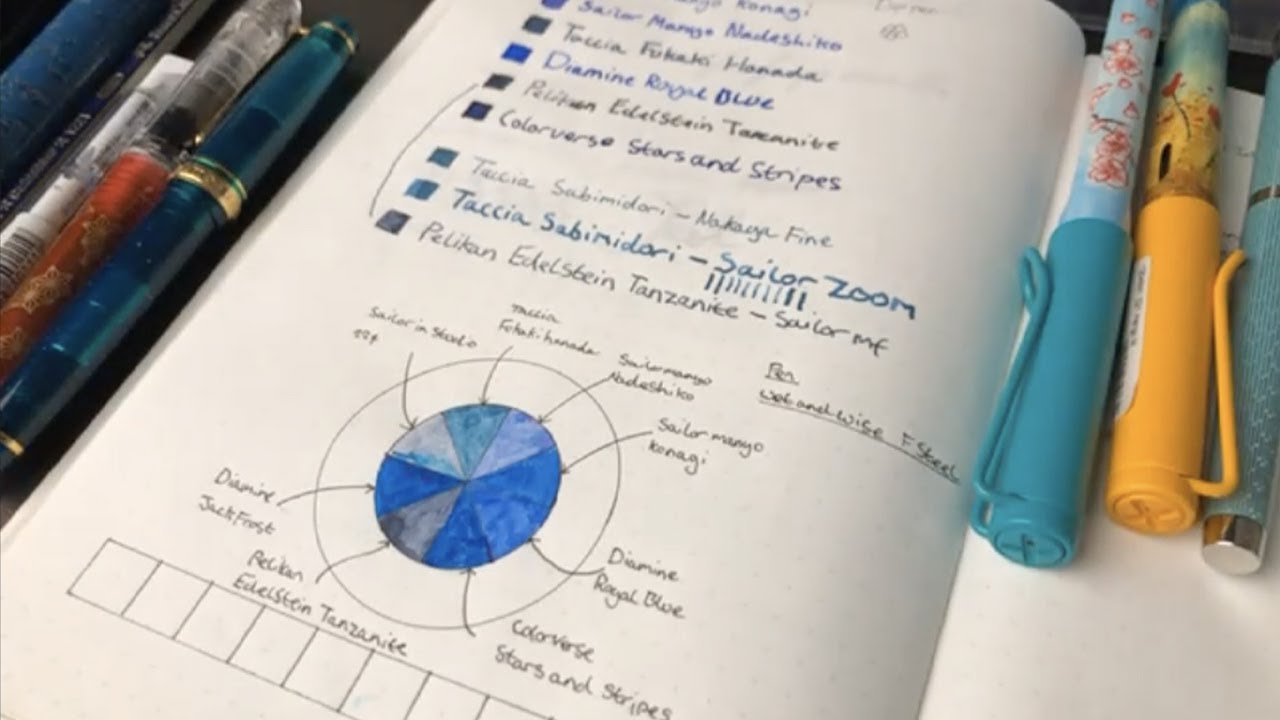 Konagi
Sailor Manyo Nadeshiko
Taccia Fukaki Hanada
Diamine Royal Blue
Pelikan Edelstein Tanzanite
Colorverse Stars and Stripes
Taccia Sabimidori - Nakaya Fine
Taccia Sabimidori - Sailor Zoom
Pelikan Edelstein Tanzanite - Sailor MF
Sailor ink Studio
Taccia
Fukaki hanada
Sailor manyo
Nadeshiko
Sailor manyo
Konagi
Pen
wet and wise F Steel
Diamine
Jack Frost
Pelikan
Edelstein Tanzanite
Diamine
Royal Blue
Colorverse
Stars and Stripes